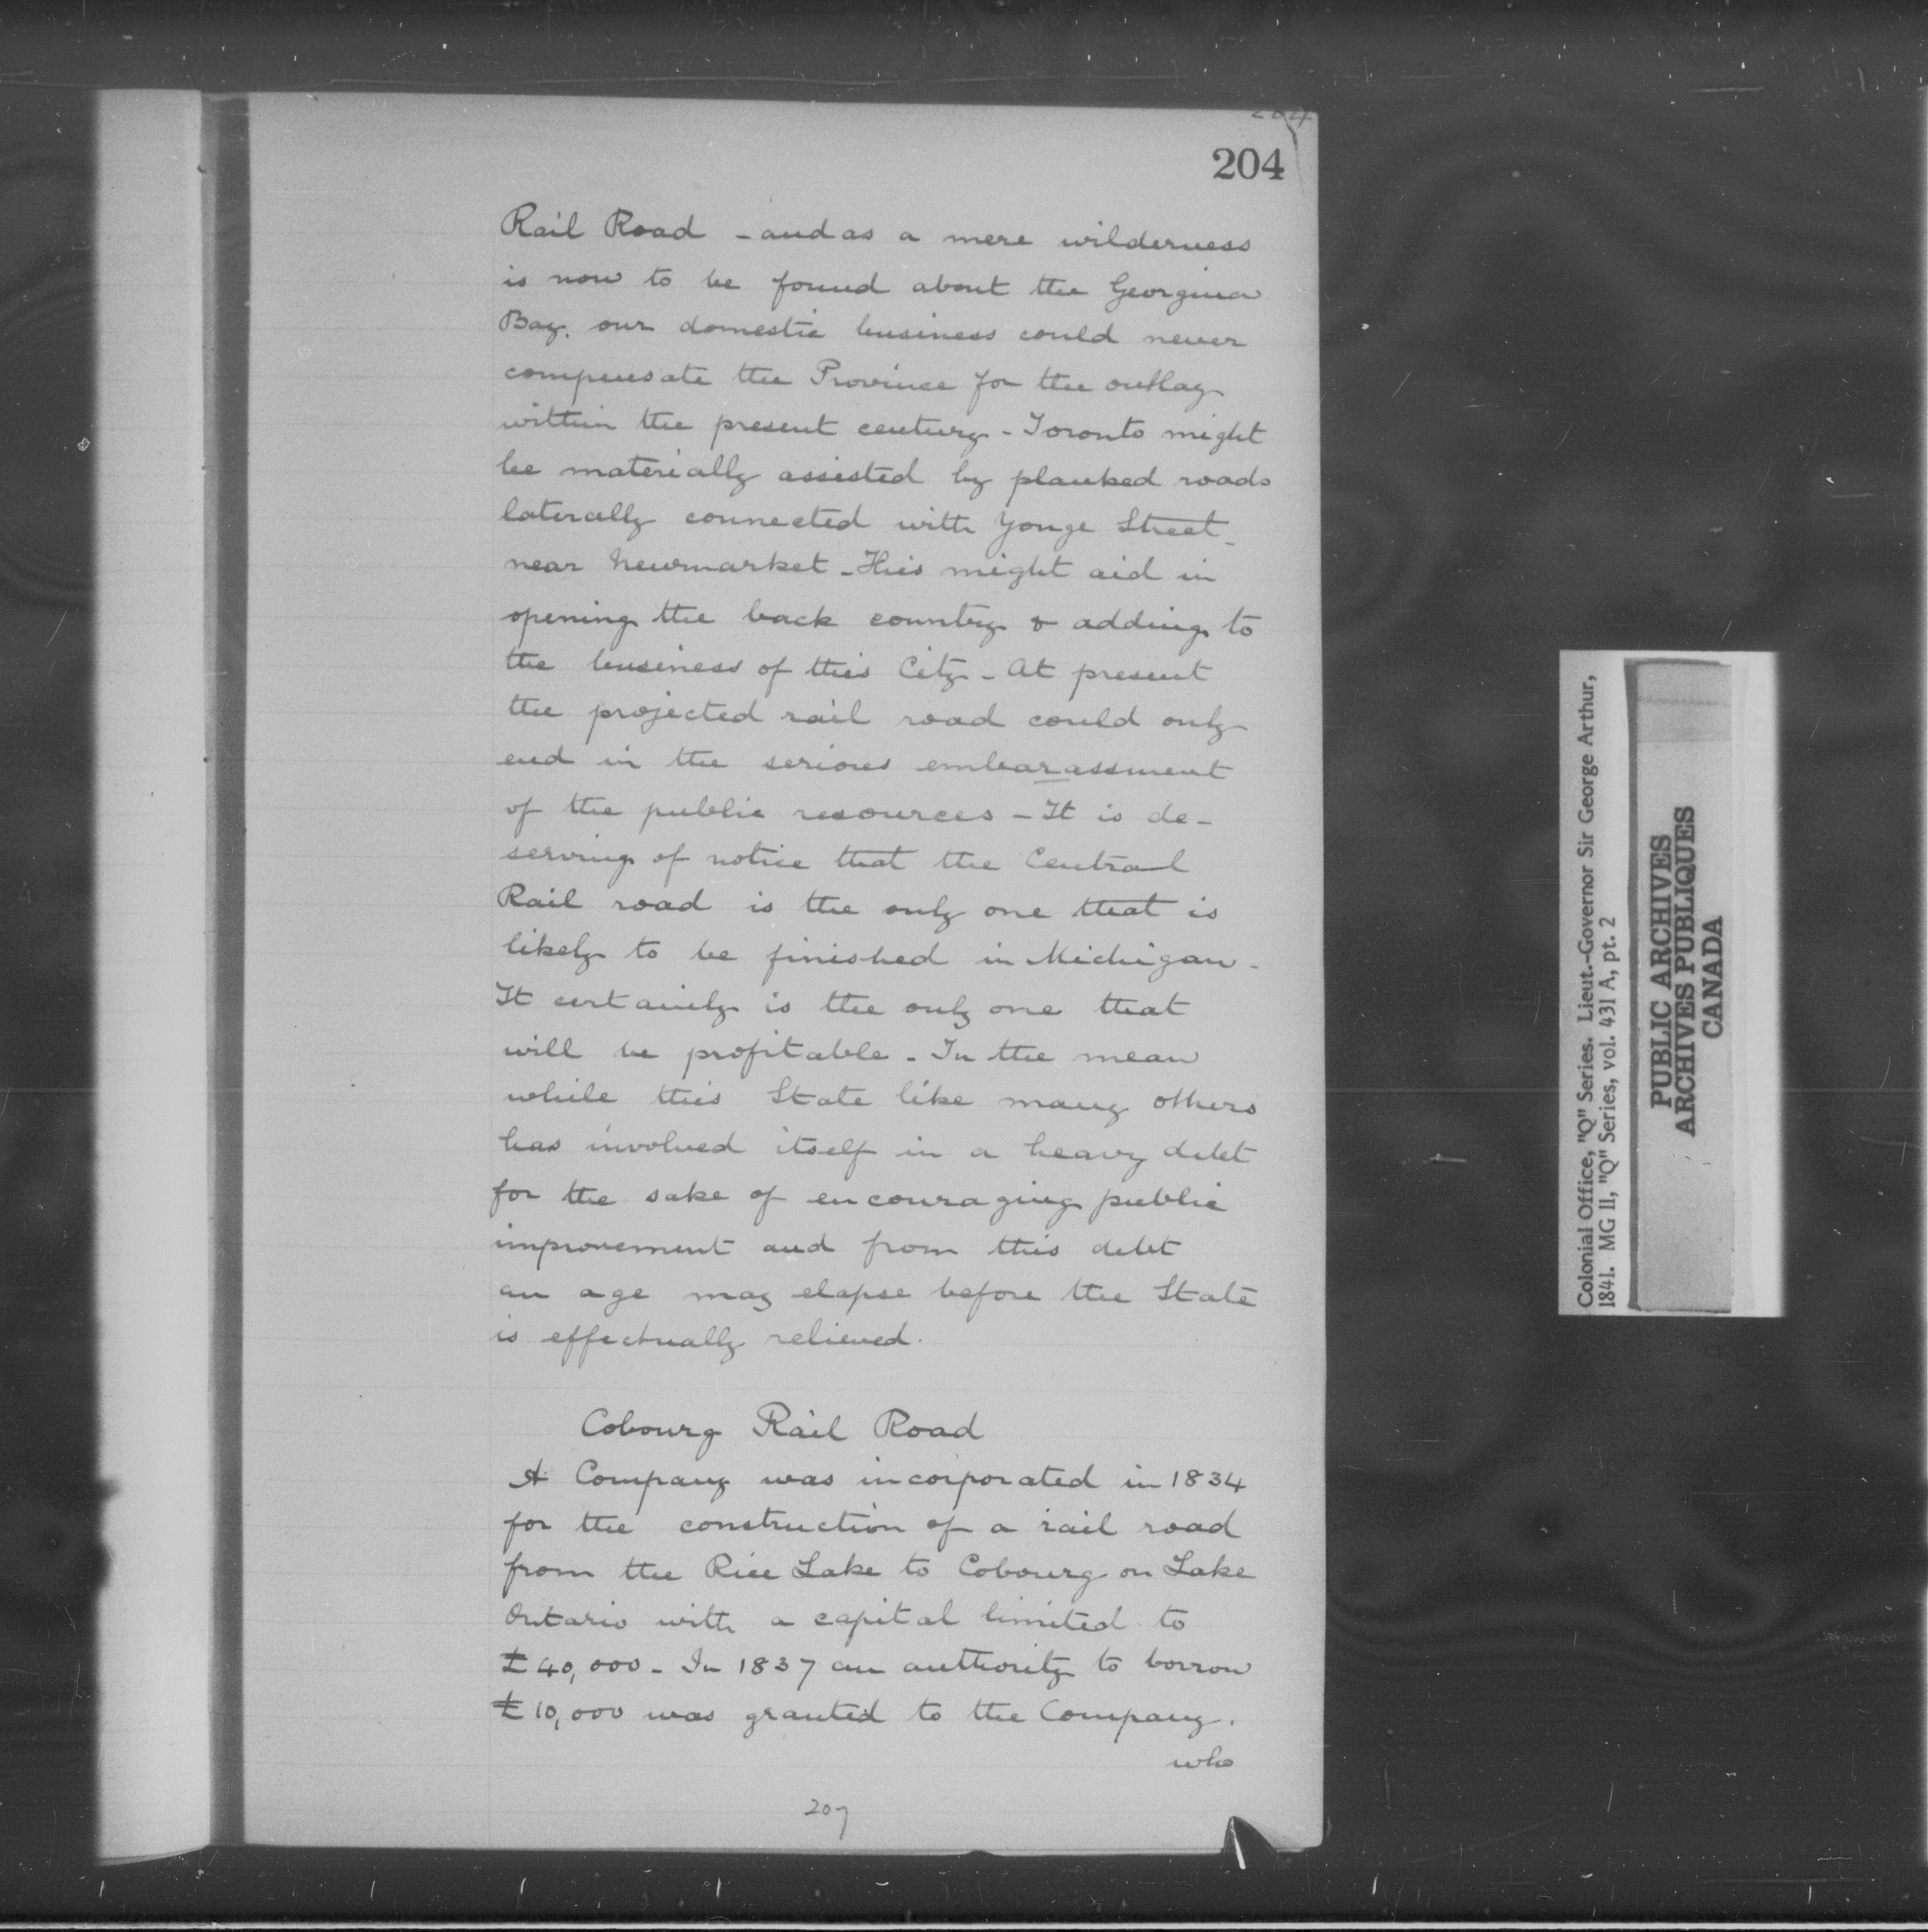 204
204
Rail Road - and as a mere wilderness
is now to be found about the Georgina
Bay. our domestic business could never
compensate the Province for the outlay
within the present century - Toronto might
be materially assisted by planked roads
laterally connected with Yonge Street -
near Newmarket - This might aid in
opening the back country & adding to
the business of this City - At present
the projected rail road could only
end in the serious embarassment
of the public resources - It is de-
serving of notice that the Central
Rail road is the only one that is
likely to be finished in Michigan -
It certainly is the only one that
will be profitable - In the mean
while this State like many others
has involved itself in a heavy debt
for the sake of encouraging public
improvement and from this debt
an age may elapse before the State
is effectually relieved.
Cobourg Rail Road
A Company was incorporated in 1834
for the construction of a rail road
from the Rice Lake to Cobourg on Lake
Ontario with a capital limited to
£40,000 - In 1837 an authority to borrow
£10,000 was granted to the Company.
who
207
Colonial Office, "Q" Series. Lieut.-Governor Sir George Arthur,
1841. MG 11, "Q" Series, vol. 431 A, pt. 2
PUBLIC ARCHIVES
ARCHIVES PUBLIQUES
CANADA